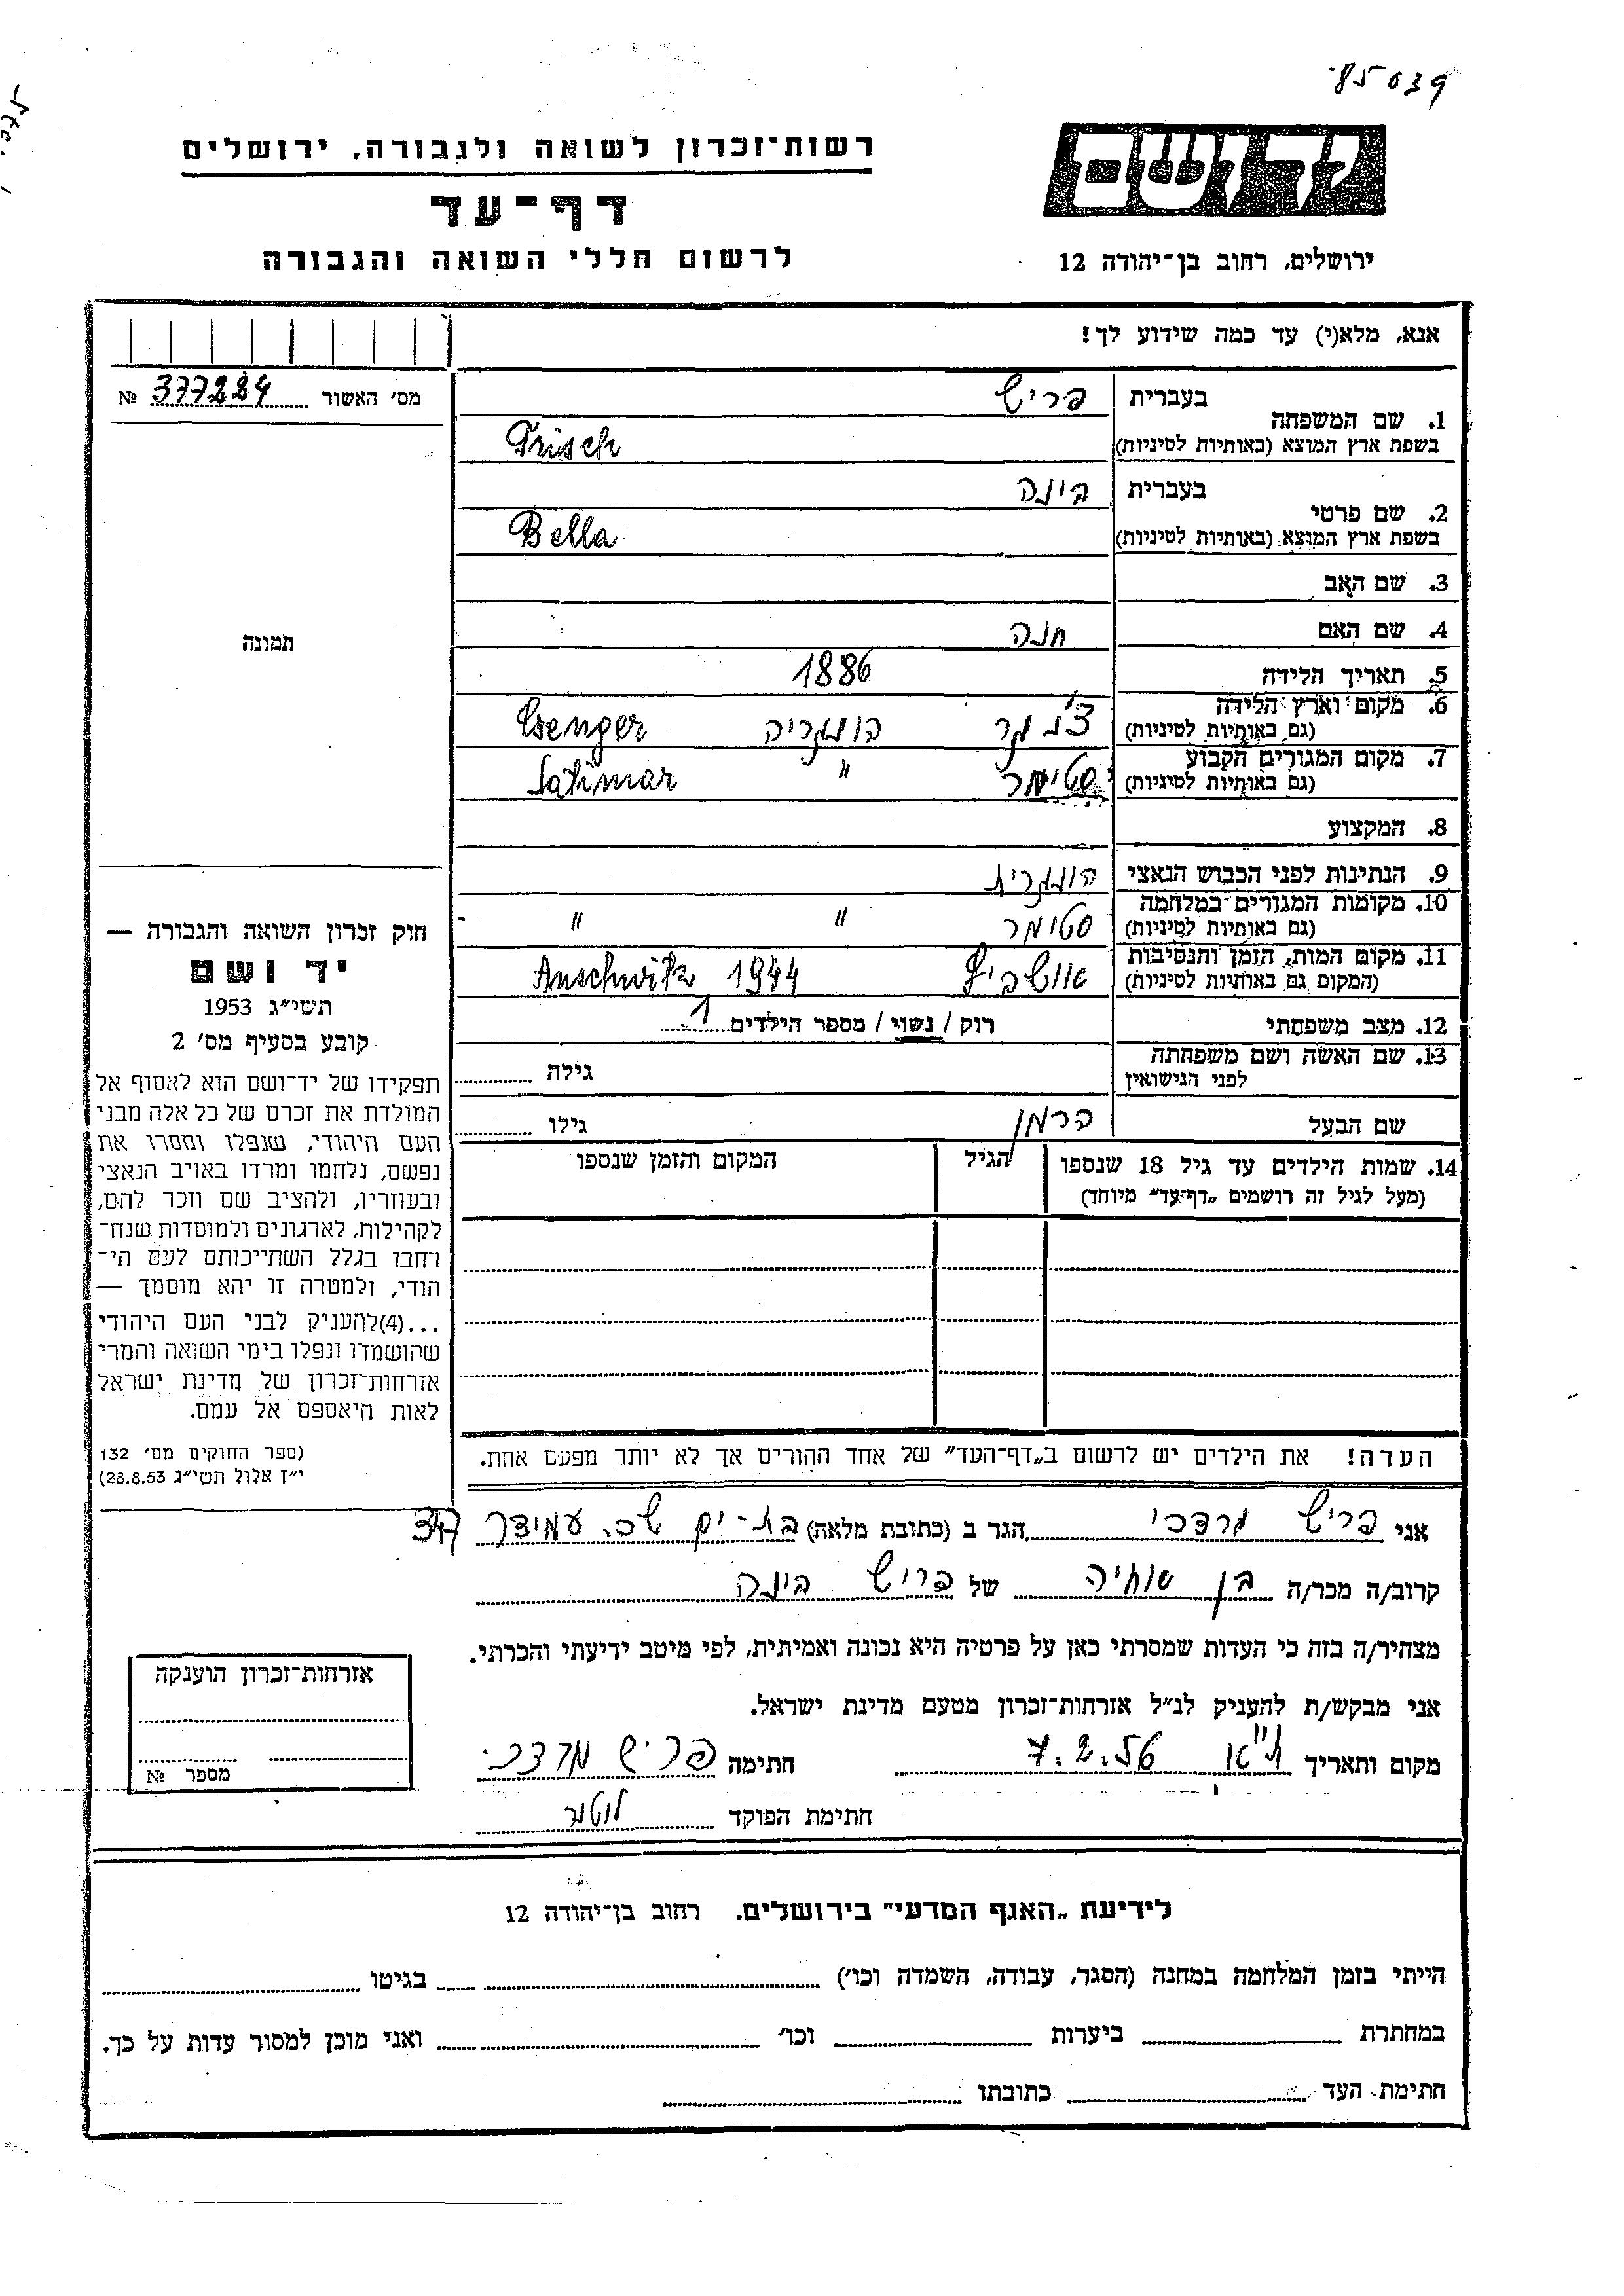 85039
רשות-זכרון לשואה ולגבורה, ירושלים
דף-עד
לרשום חללי השואה והגבורה
ידושם
ירושלים, רחוב בן-יהודה 12
אנא, מלא(י) עד כמה שידוע לך!
מס' האשור 377224 №
1. שם המשפחה
בעברית פריש
בשפת ארץ המוצא (באותיות לטיניות) Frisch
2. שם פרטי
בעברית בינה
בשפת ארץ המוצא (באותיות לטיניות) Bella
3. שם האב
4. שם האם חנה
תמונה
5. תאריך הלידה 1886
6. מקום וארץ הלידה
(גם באותיות לטיניות) צ'נגר הונגריה Csenger
7. מקום המגורים הקבוע
(גם באותיות לטיניות) סטימר " Satimar
8. המקצוע
9. הנתינות לפני הכבוש הנאצי הונגרית
10. מקומות המגורים במלחמה
(גם באותיות לטיניות) סטימר " "
11. מקום המות, הזמן והנסיבות
(המקום גם באותיות לטיניות) אושביץ 1944 Auschwitz
12. מצב משפחתי רוק / נשוי / מספר הילדים 1
13. שם האשה ושם משפחתה
לפני הנישואין גילה
שם הבעל הרמן גילו
14. שמות הילדים עד גיל 18 שנספו הגיל המקום והזמן שנספו
(מעל לגיל זה רושמים „דף-עד" מיוחד)
חוק זכרון השואה והגבורה —
יד ושם
תשי"ג 1953
קובע בסעיף מס' 2
תפקידו של יד-ושם הוא לאסוף אל
המולדת את זכרם של כל אלה מבני
העם היהודי, שנפלו ומסרו את
נפשם, נלחמו ומרדו באויב הנאצי
ובעוזריו, ולהציב שם וזכר להם,
לקהילות, לארגונים ולמוסדות שנח-
רחבו בגלל השתייכותם לעם הי-
הודי, ולמטרה זו יהא מוסמך —
...(4)להעניק לבני העם היהודי
שהושמדו ונפלו בימי השואה והמרי
אזרחות-זכרון של מדינת ישראל
לאות היאספם אל עמם.
(ספר החוקים מס' 132
י"ז אלול תשי"ג 28.8.53)
הערה! את הילדים יש לרשום ב„דף-העד" של אחד ההורים אך לא יותר מפעם אחת.
אני פריש מרדכי הגר ב (כתובת מלאה) בת-ים שכ. עמידר
קרוב/ה מכר/ה בן אחיה של פריש בינה
מצהיר/ה בזה כי העדות שמסרתי כאן על פרטיה היא נכונה ואמיתית, לפי מיטב ידיעתי והכרתי.
אני מבקש/ת להעניק לנ"ל אזרחות-זכרון מטעם מדינת ישראל.
מקום ותאריך ת"א 7.2.56 חתימה פריש מרדכי
חתימת הפוקד
אזרחות-זכרון הוענקה
מספר №
לידיעת „האגף המדעי" בירושלים. רחוב בן-יהודה 12
הייתי בזמן המלחמה במחנה (הסגר, עבודה, השמדה וכו') בגיטו
במחתרת ביערות וכו' ואני מוכן למסור עדות על כך.
חתימת העד כתובתו